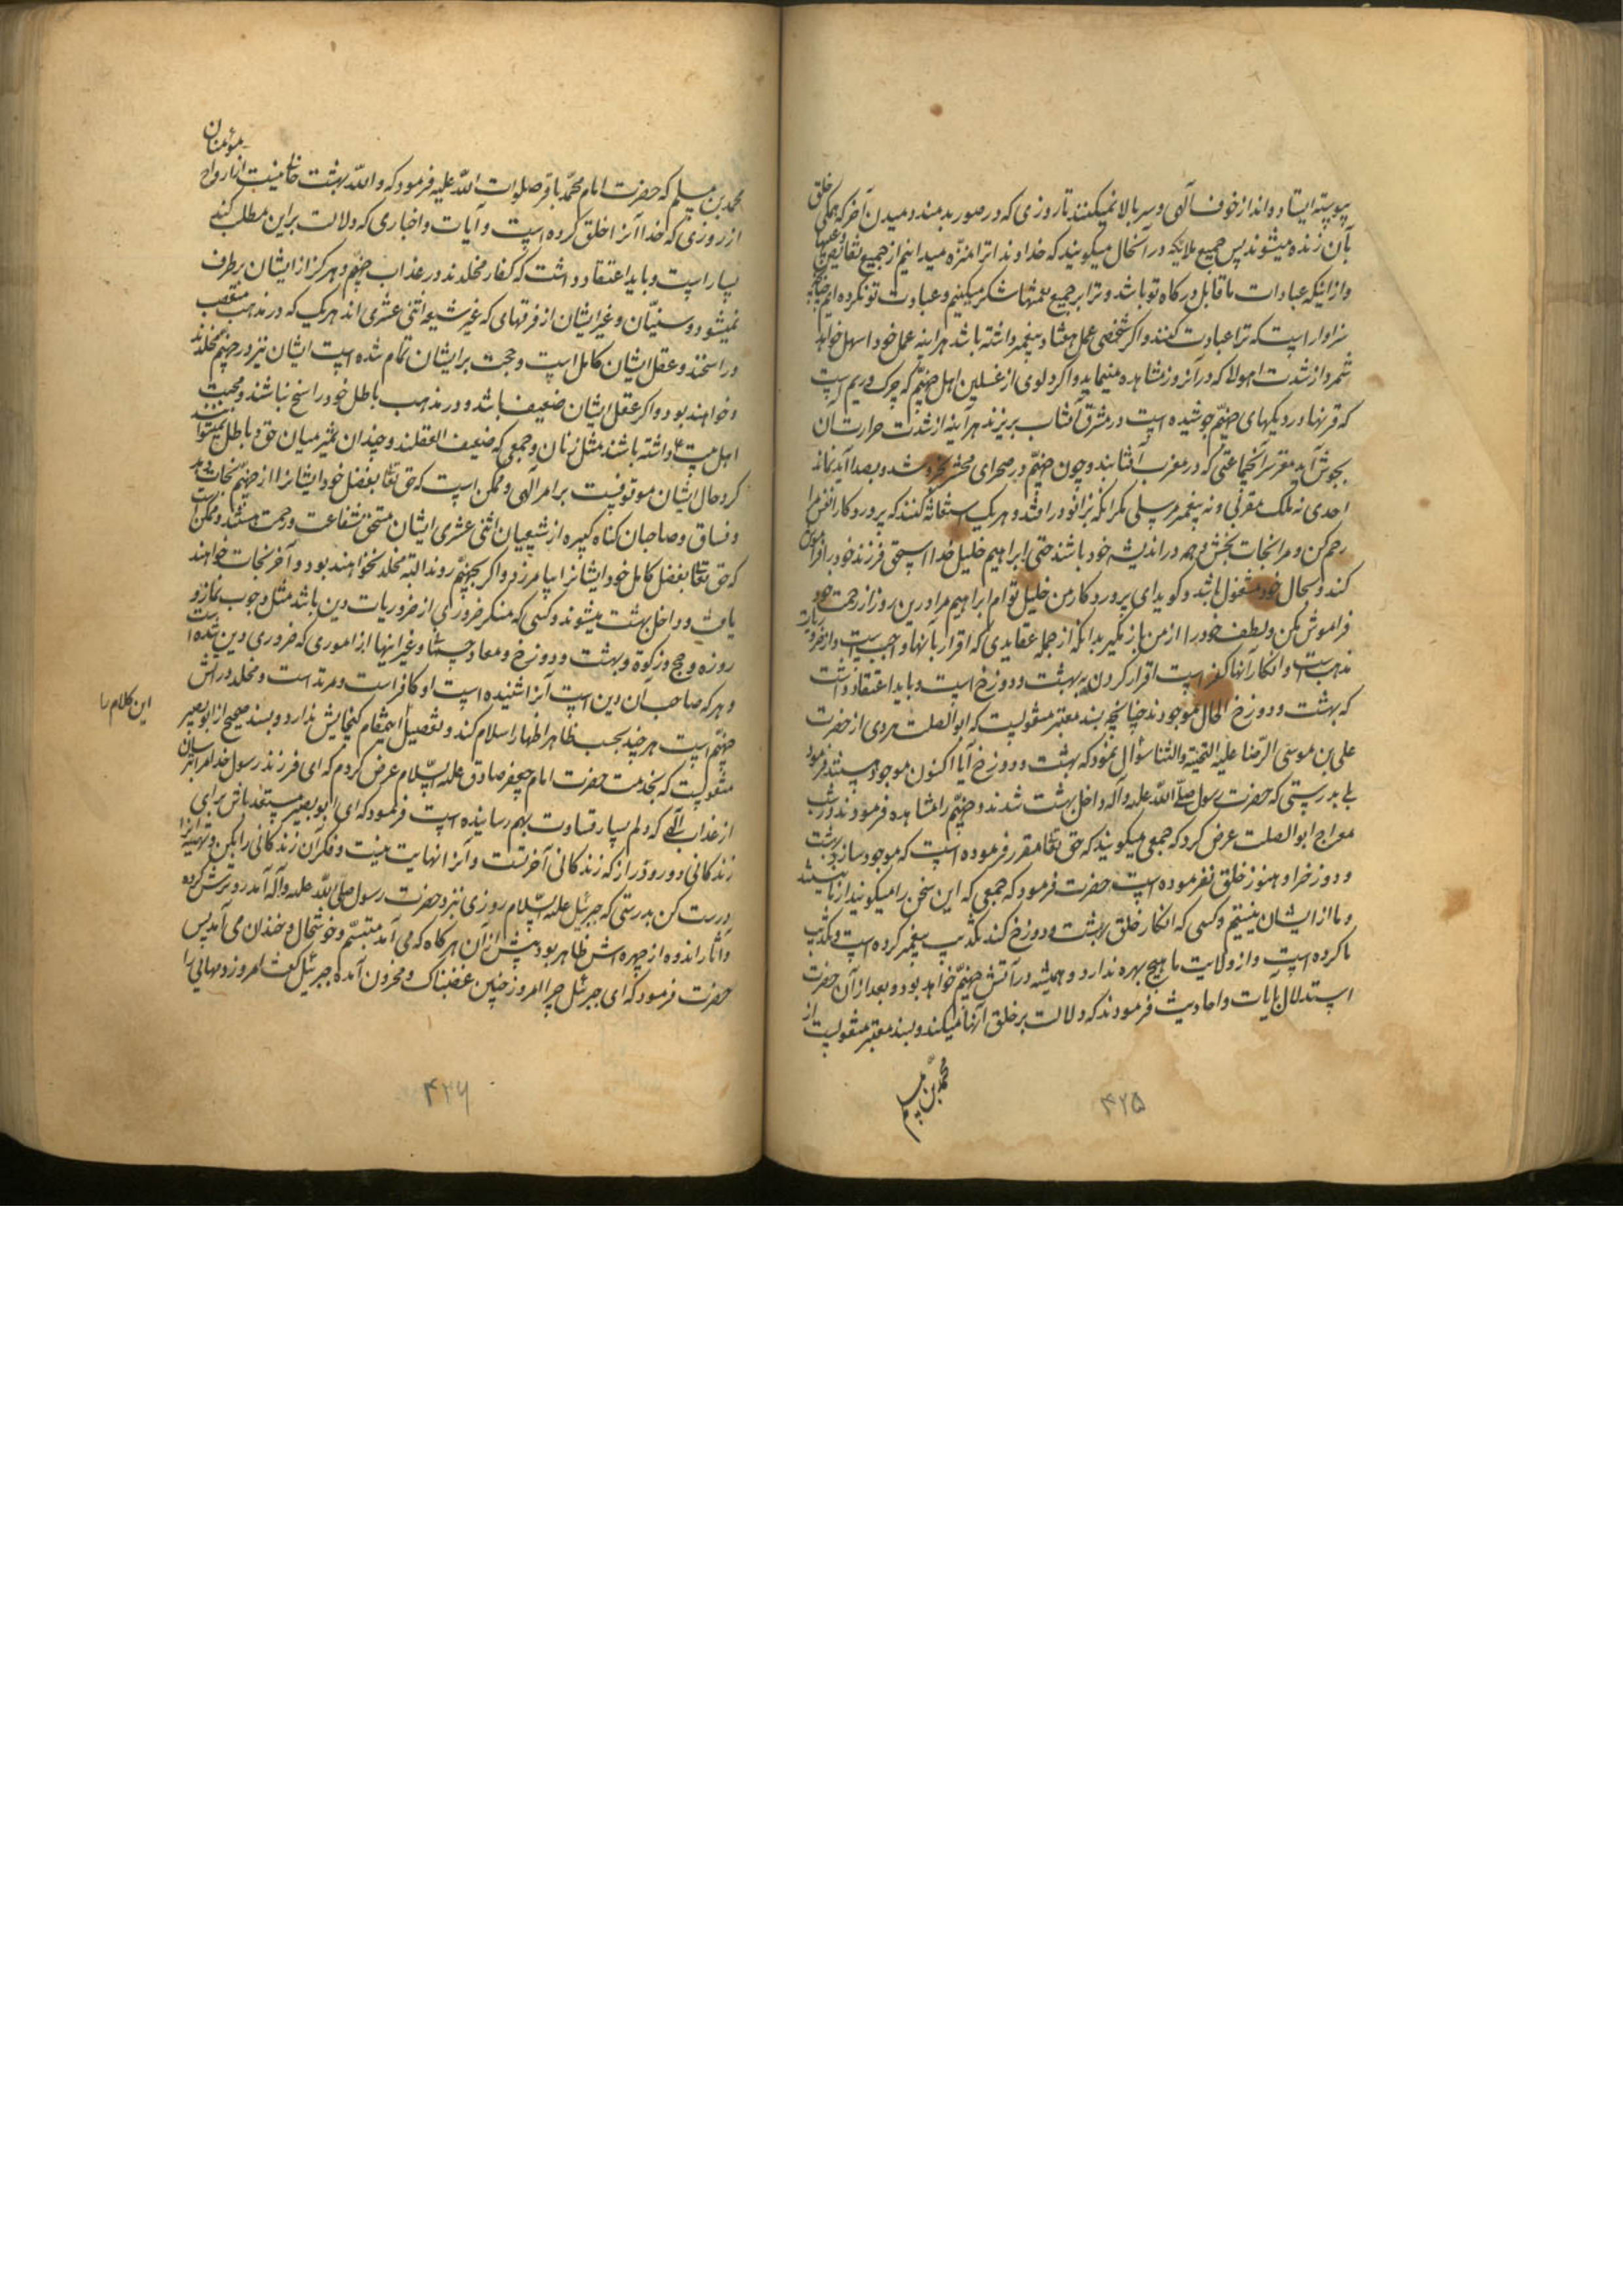 پیوسته ایستاده‌اند از خوف الهی و سر بالا نمیکنند تا روزی که در صور بدمند و میدن آخر که همکی خلق
بآن زنده میشوند پس جمیع ملایکه در آنحال میکویند که خداوندا ترا منزه میدانیم از جمیع نقایص و عیبها
و از اینکه عبادات ما قابل درکاه تو باشد و ترا بر جمیع نعمتها شکر میکنیم و عبادت تو نکرده ایم چنانچه
سزاوار است که ترا عبادت کنند و اکر شخصی عمل هفتاد پیغمبر داشته باشد هراینه عمل خود را سهل خواهد
شمرد از شدت اهوالی که در آنروز مشاهده مینماید و اکر دلوی از غسلین اهل جهنم که چرک و ریم است
که قرنها در دیکهای جهنم جوشیده است در مشرق آفتاب بریزند هرآینه از شدت حرارت آن
بجوش آید مغز سر آنجماعتی که در مغرب آفتابند و چون جهنم در صحرای محشر بخروشد و بصدا آید نماند
احدی نه ملک مقربی و نه پیغمبر مرسلی مکر آنکه بزانو در افتد و هر یک استغاثه کنند که پروردکارا نفس مرا
رحم کن و مرا نجات بخش و همه در اندیشه خود باشند حتی ابراهیم خلیل خدا اسحق فرزند خود را فراموش
کند و بحال خود مشغول باشد و کوید ای پروردکار من خلیل توام ابراهیم مرا درین روز از رحمت خود
فراموش مکن و لطف خود را از من باز مکیر بدانکه از جمله عقایدی که اقرار بآنها واجبست و از ضروریات
مذهبست و انکار آنها کفر است اقرار کردن به بهشت و دوزخ است و باید اعتقاد داشت
که بهشت و دوزخ الحال موجودند چنانچه بسند معتبر منقولست که ابو الصلت هروی از حضرت
علی بن موسی الرضا علیه التحیة و الثنا سؤال نمود که بهشت و دوزخ آیا اکنون موجود هستند فرمود
بلی بدرستی که حضرت رسول صلی الله علیه و آله داخل بهشت شدند و جهنم را مشاهده فرمودند در شب
معراج ابو الصلت عرض کرد که جمعی میکویند که حق تعا مقرر فرموده است که موجود سازد بهشت
و دوزخ را و هنوز خلق نفرموده است حضرت فرمود که جمعی که این سخن را میکویند از ما نیستند
و ما از ایشان نیستیم و کسی که انکار خلق بهشت و دوزخ کند تکذیب پیغمبر کرده است و تکذیب
ما کرده است و از ولایت ما هیچ بهره ندارد و همیشه در آتش جهنم خواهد بود و بعد از آن حضرت
استدلال بآیات و احادیث فرمودند که دلالت بر خلق آنها میکند و بسند معتبر منقولست از
محمد بن مسلم
۴۲۵
محمد بن مسلم که حضرت امام محمد باقر صلوات الله علیه فرمود که و الله بهشت خالی نیست از ارواح مؤمنان
از روزی که خدا آنرا خلق کرده است و آیات و اخباری که دلالت براین مطلب کند
بسیار است و باید اعتقاد داشت که کفار مخلدند در عذاب جهنم و هرکز از ایشان برطرف
نمیشود و سنیان و غیر ایشان از فرقهای که غیر شیعه اثنی عشری اند هر یک که در مذهب متعصب
و راسخند و عقل ایشان کامل است و حجت بر ایشان تمام شده است ایشان نیز در جهنم مخلدند
و خواهند بود و اکر عقل ایشان ضعیف باشد و در مذهب باطل خود راسخ نباشند و محبت
اهل بیت ع داشته باشند مثل زنان و جمعی که ضعیف العقلند و چندان تمیز میان حق و باطل نمیتوانند
کرد حال ایشان موقوفست بر امر الهی و ممکن است که حق تعا بفضل خود ایشانرا از جهنم نجات دهد
و فساق و صاحبان کناه کبیره از شیعیان اثنی عشری ایشان مستحق شفاعت و رحمت هستند و ممکن است
که حق تعا بفضل کامل خود ایشانرا بیامرزد و اکر بجهنم روند البته مخلد نخواهند بود و آخر نجات خواهند
یافت و داخل بهشت میشوند و کسی که منکر ضروری از ضروریات دین باشد مثل وجوب نماز و
روزه و حج و زکوة و بهشت و دوزخ و معاد جسمانی و غیر اینها از اموری که ضروری دین شده است
و هر که صاحب آن دین است آنرا شنیده است او کافر است و مرتد است و مخلد در آتش
جهنم است هر چند بحسب ظاهر اظهار اسلام کند و تفصیل اینمقام کنجایش ندارد و بسند صحیح از ابو بصیر
این کلام را
منقولست که بخدمت حضرت امام جعفر صادق علیه السلام عرض کردم که ای فرزند رسول خدا مرا بترسان
از عذاب الهی که دلم بسیار قساوت بهم رسانیده است فرمود که ای ابو بصیر مستعد باش برای
زندکانی دور و دراز که زندکانی آخرتست و آنرا نهایت نیست و فکر آن زندکانی را بکن و تهیه آنرا
درست کن بدرستی که جبرئیل علیه السلام روزی نزد حضرت رسول صلی الله علیه و آله آمد رو ترش کرده
و آثار اندوه از چهره اش ظاهر بود و پیش از آن هرکاه که می آمد متبسم و خوشحال و خندان می آمد پس
حضرت فرمود که ای جبرئیل چرا امروز چنین غضبناک و محزون آمدۀ جبرئیل کفت امروز دمهائی را
۴۲۶